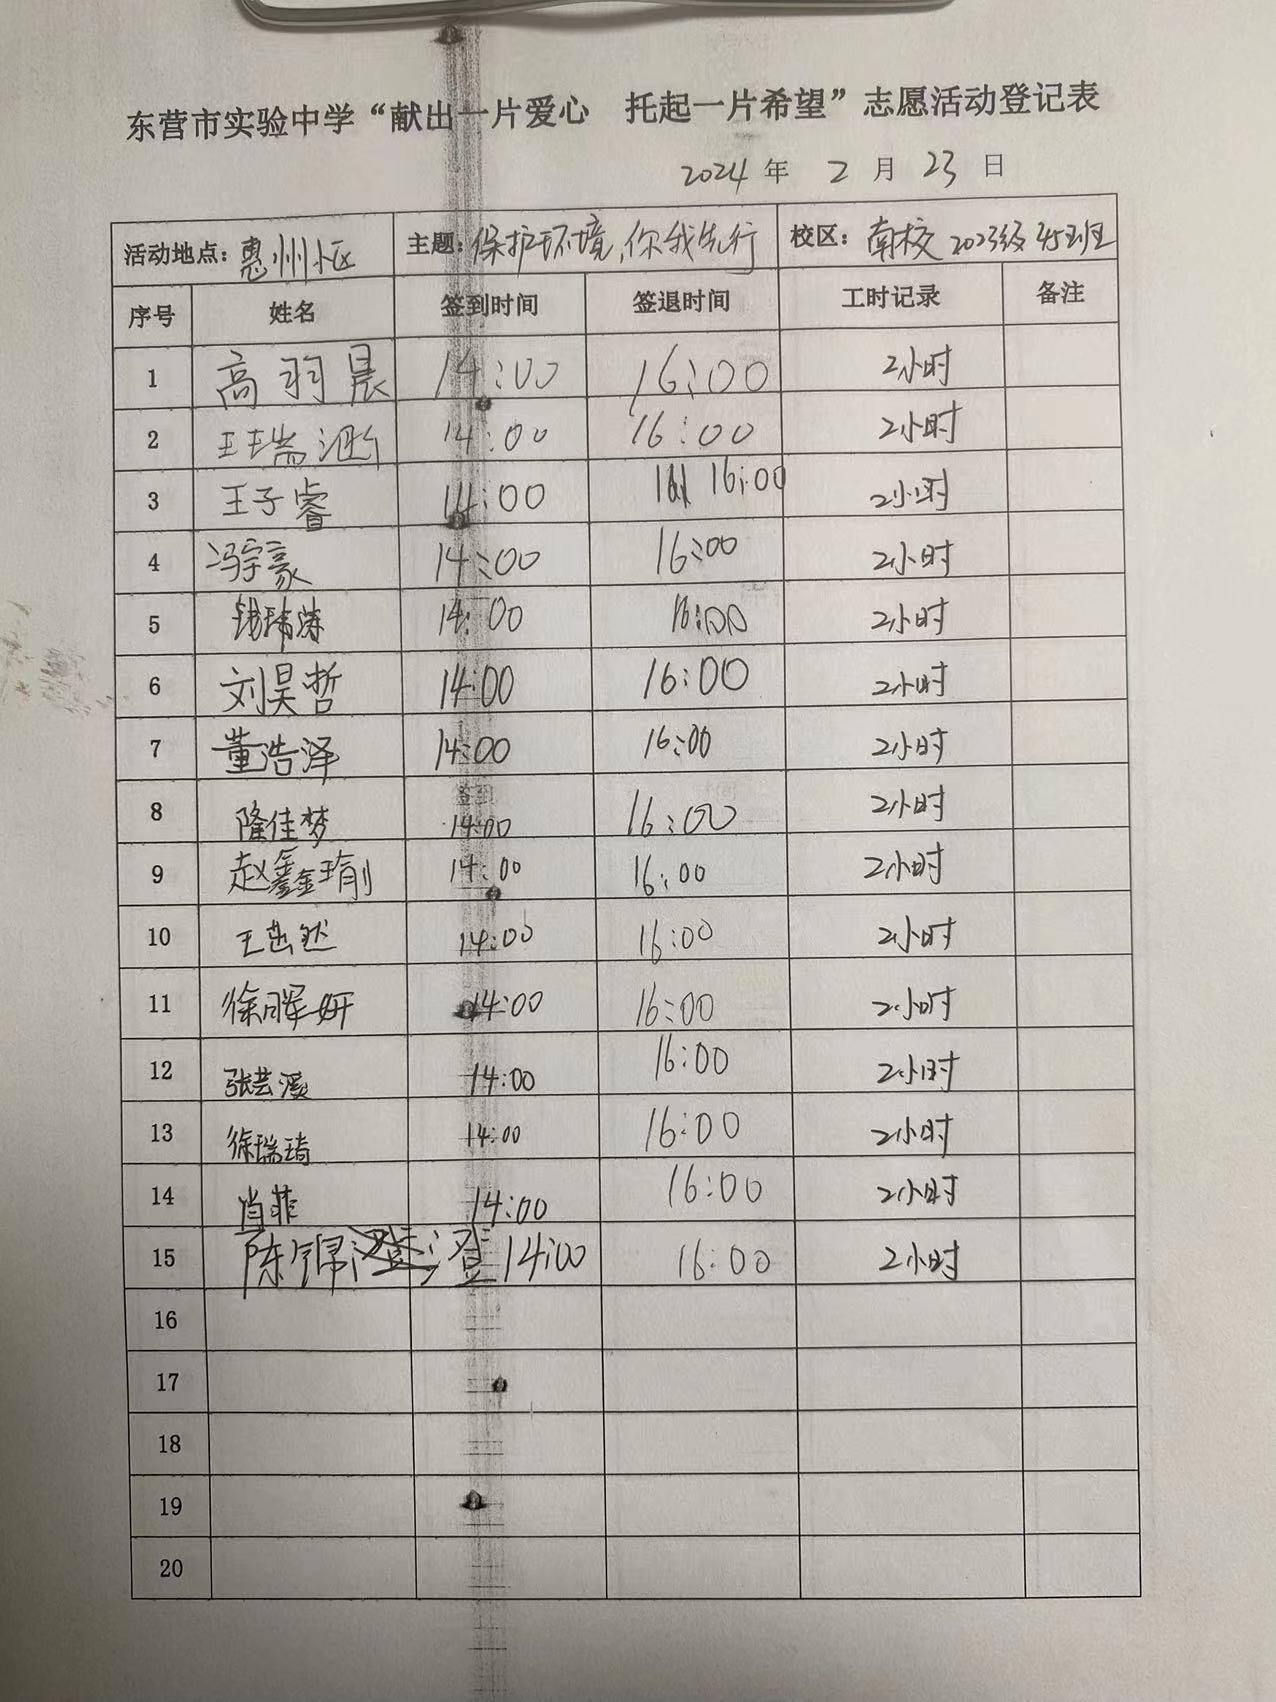 东营市实验中学“献出一片爱心 托起一片希望”志愿活动登记表
2024 年 2 月 23 日
活动地点：惠州小区 主题：保护环境，你我先行 校区：南校 2023级45班
序号 姓名 签到时间 签退时间 工时记录 备注
1 高羽晨 14:00 16:00 2小时
2 王瑞 14:00 16:00 2小时
3 王子睿 14:00 16:00 2小时
4 冯宇豪 14:00 16:00 2小时
5 14:00 16:00 2小时
6 刘昊哲 14:00 16:00 2小时
7 董浩泽 14:00 16:00 2小时
签到
8 隆佳梦 14:00 16:00 2小时
9 赵鑫瑜 14:00 16:00 2小时
10 王 然 14:00 16:00 2小时
11 徐晖妍 14:00 16:00 2小时
12 张芸溪 14:00 16:00 2小时
13 徐瑞琦 14:00 16:00 2小时
14 肖菲 14:00 16:00 2小时
15 陈锦澄 14:00 16:00 2小时
16
17
18
19
20